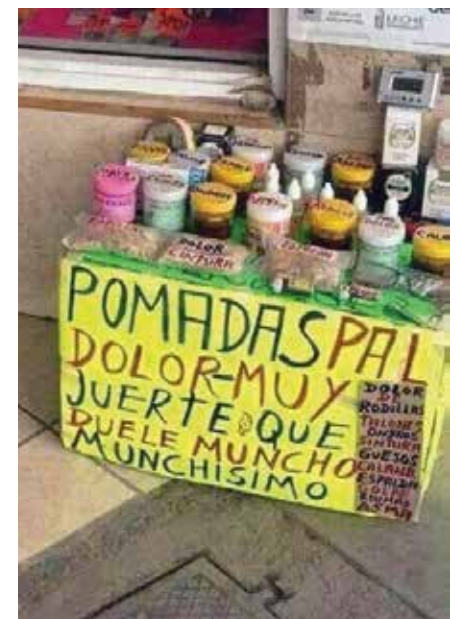 LECHE
DOLOR
CINTURA
POMADAS PAL
DOLOR-MUY
JUERTE QUE
DUELE MUNCHO
MUNCHISIMO
DOLOR
DE
RODILLAS
TALONES
SINTURA
GUESOS
CALAMB
ESPALDA
GOLPE
REUMAS
ASMA